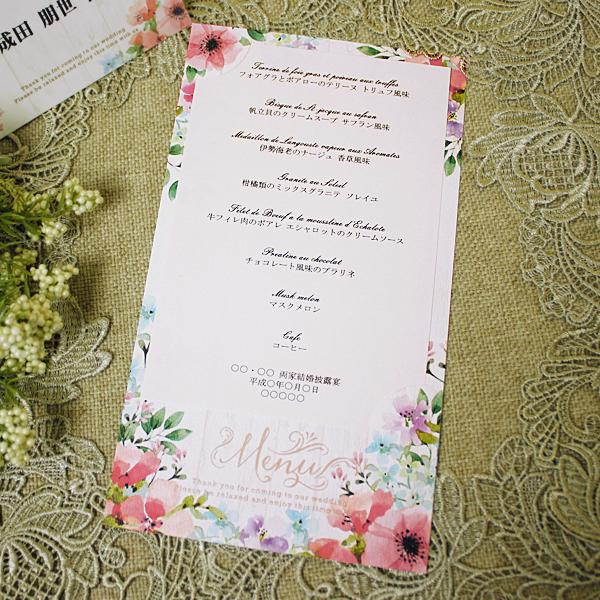 成田 朋世
Thank you for coming to our wedding
Please be relaxed and enjoy this time
Terrine de foie gras et poireau aux truffes
フォアグラとポアローのテリーヌ トリュフ風味
Bisque de St.jacque au safran
帆立貝のクリームスープ サフラン風味
Medaillon de Langouste vapeur aux Aromates
伊勢海老のナージュ 香草風味
Granite au Soleil
柑橘類のミックスグラニテ ソレイユ
Filet de Bœuf a la mousseline d'Echalote
牛フィレ肉のポアレ エシャロットのクリームソース
Praline au chocolat
チョコレート風味のプラリネ
Musk melon
マスクメロン
Cafe
コーヒー
○○・○○ 両家結婚披露宴
平成○年○月○日
○○○○○
Menu
Thank you for coming to our wedding
Please be relaxed and enjoy this time